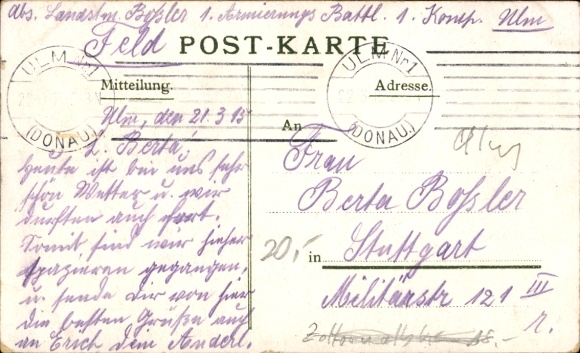 Abs. Landstm. Boßler 1. Armierungs Battl. 1. Komp. Ulm
Feld POST-KARTE
ULM Nr1
(DONAU.)
ULM Nr1
(DONAU.)
Mitteilung.
Adresse.
Ulm, den 21.3.15
L. Berta,
Heute ist bei uns sehr
schön Wetter u. wir
durften auch fort.
Somit sind wir hieher
spazieren gegangen,
u. sende Dir von hier
die besten Grüße auch
an Erich dem Anderl.
An
Frau
Berta Boßler
in Stuttgart
Militärstr 121 III
r.
Ulm
20,-